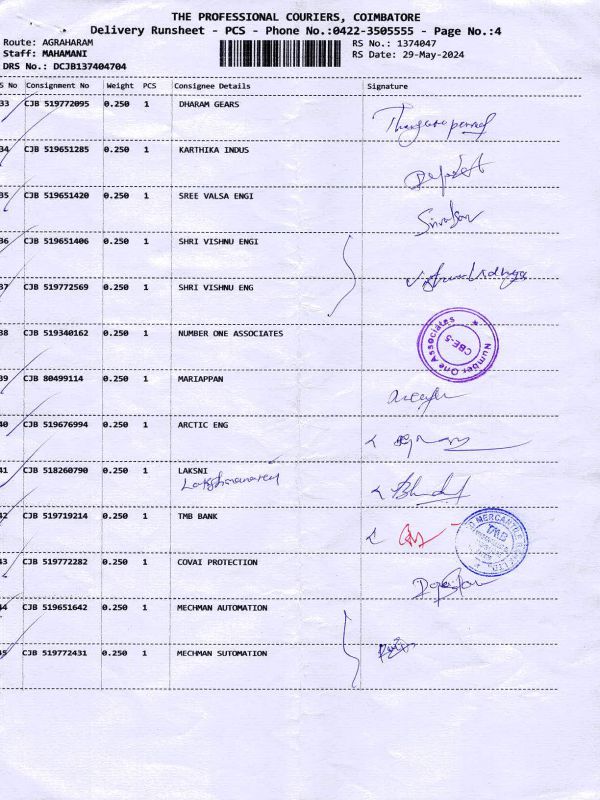 THE PROFESSIONAL COURIERS, COIMBATORE
Delivery Runsheet - PCS - Phone No.:0422-3505555 - Page No.:4
Route: AGRAHARAM RS No.: 1374047
Staff: MAHAMANI RS Date: 29-May-2024
DRS No.: DCJB137404704
S No Consignment No Weight PCS Consignee Details Signature
33 CJB 519772095 0.250 1 DHARAM GEARS
34 CJB 519651285 0.250 1 KARTHIKA INDUS
35 CJB 519651420 0.250 1 SREE VALSA ENGI
36 CJB 519651406 0.250 1 SHRI VISHNU ENGI
37 CJB 519772569 0.250 1 SHRI VISHNU ENG
38 CJB 519340162 0.250 1 NUMBER ONE ASSOCIATES
Number One Associates
CBE-5
39 CJB 80499114 0.250 1 MARIAPPAN
40 CJB 519676994 0.250 1 ARCTIC ENG
41 CJB 518260790 0.250 1 LAKSNI
42 CJB 519719214 0.250 1 TMB BANK
TMB
43 CJB 519772282 0.250 1 COVAI PROTECTION
44 CJB 519651642 0.250 1 MECHMAN AUTOMATION
45 CJB 519772431 0.250 1 MECHMAN SUTOMATION